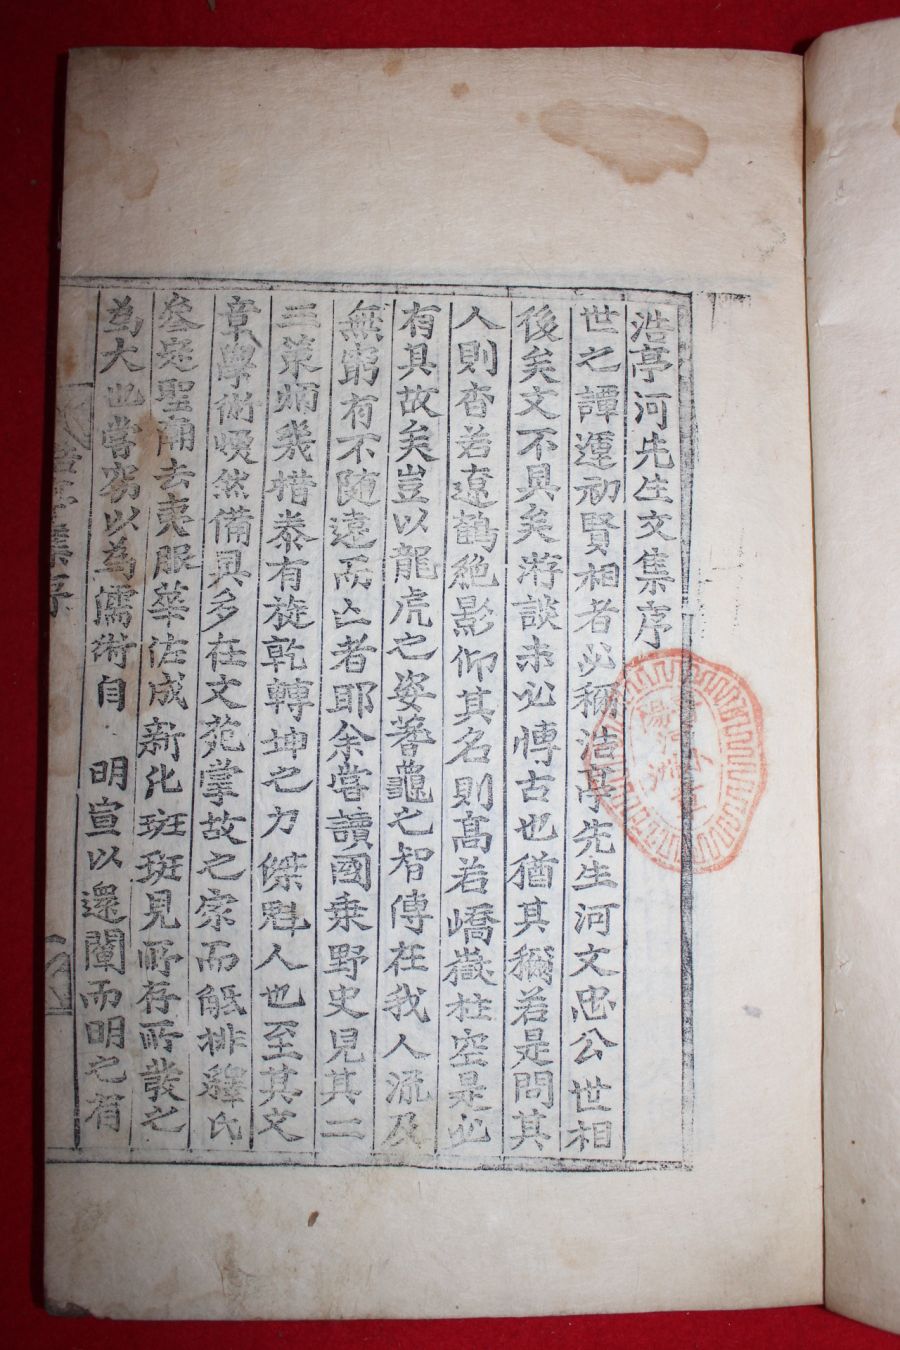 浩亭河先生文集序
世之譚運初賢相者必稱浩亭先生河文忠公世相
後矣文不具矣游談未必愽古也猶其稱若是問其
人則杳若遼鶴絶影仰其名則髙若嶠嶽柱空是必
有具故矣豈以龍虎之姿蓍龜之智傳在我人涵及
無窮有不随遠而亡者耶余嘗讀國乗野史見其二
三策炳幾措泰有旋乾轉坤之力傑魁人也至其文
章學術煥然備具多在文苑掌故之家而觝排釋氏
叅定聖廟去夷服華佐成新化斑斑見所存所發之
為大也嘗竊以為儒術自 明宣以還闡而明之有
浩亭集序